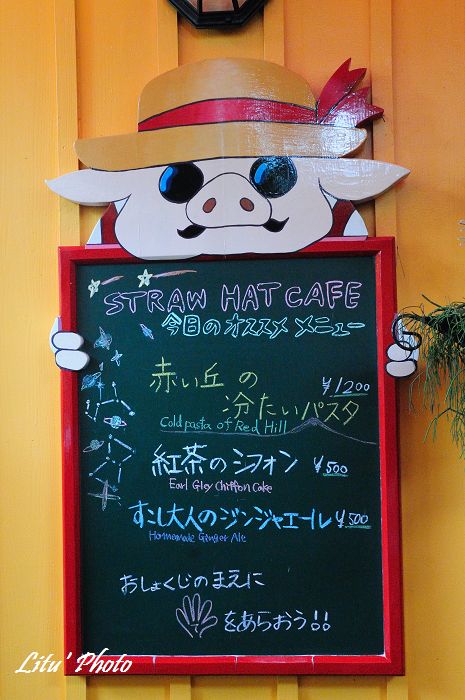 STRAW HAT CAFE
今日のオススメ メニュー
赤い丘の ¥1200
冷たいパスタ
Cold pasta of Red Hill
紅茶のシフォン ¥500
Earl Gley Chiffon Cake
すこし大人のジンジャエール ¥500
Homemade Ginger Ale
おしょくじのまえに
をあらおう!!
Litu' Photo